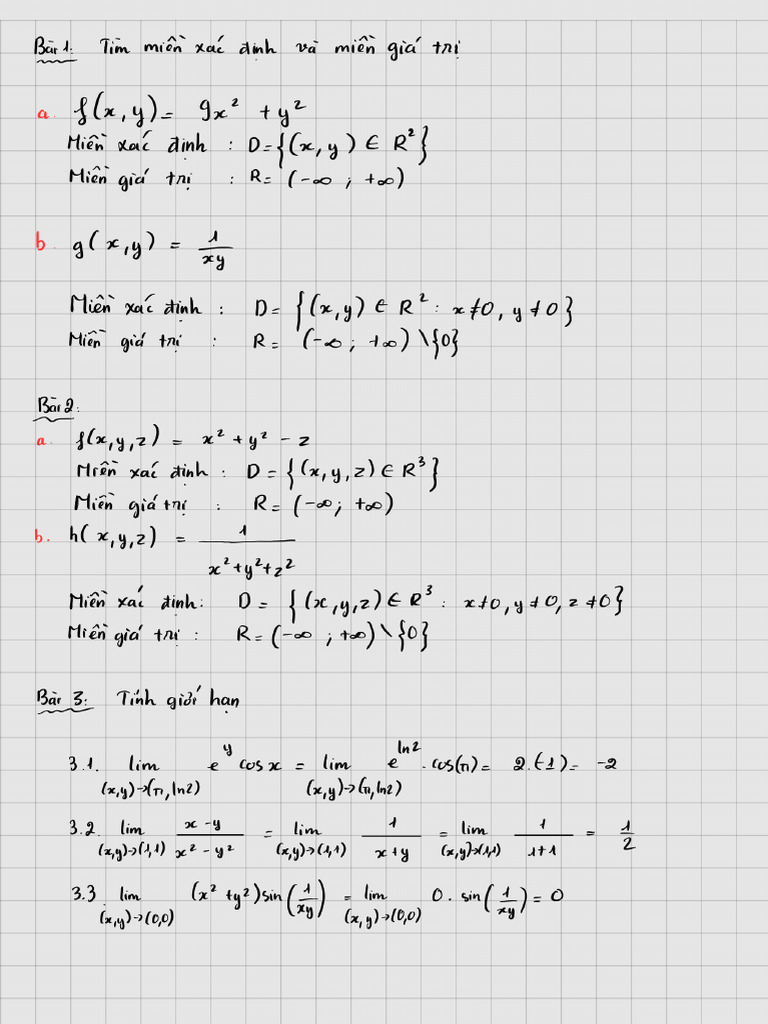 Bài 1: Tìm miền xác định và miền giá trị
a. f(x,y) = 9x² + y²
Miền xác định : D = {(x,y) ∈ R²}
Miền giá trị : R = (-∞ ; +∞)
b. g(x,y) = 1/xy
Miền xác định : D = {(x,y) ∈ R² : x≠0, y≠0}
Miền giá trị : R = (-∞ ; +∞) \ {0}
Bài 2:
a. f(x,y,z) = x² + y² - z
Miền xác định : D = {(x,y,z) ∈ R³}
Miền giá trị : R = (-∞; +∞)
b. h(x,y,z) = 1/(x²+y²+z²)
Miền xác định: D = {(x,y,z) ∈ R³ : x≠0, y≠0, z≠0}
Miền giá trị : R = (-∞ ; +∞) \ {0}
Bài 3: Tính giới hạn
3.1. lim (x,y)→(π,ln2) e^y cosx = lim (x,y)→(π,ln2) e^ln2 . cos(π) = 2.(-1) = -2
3.2. lim (x,y)→(1,1) (x-y)/(x²-y²) = lim (x,y)→(1,1) 1/(x+y) = lim (x,y)→(1,1) 1/(1+1) = 1/2
3.3. lim (x,y)→(0,0) (x²+y²)sin(1/xy) = lim (x,y)→(0,0) 0. sin(1/xy) = 0